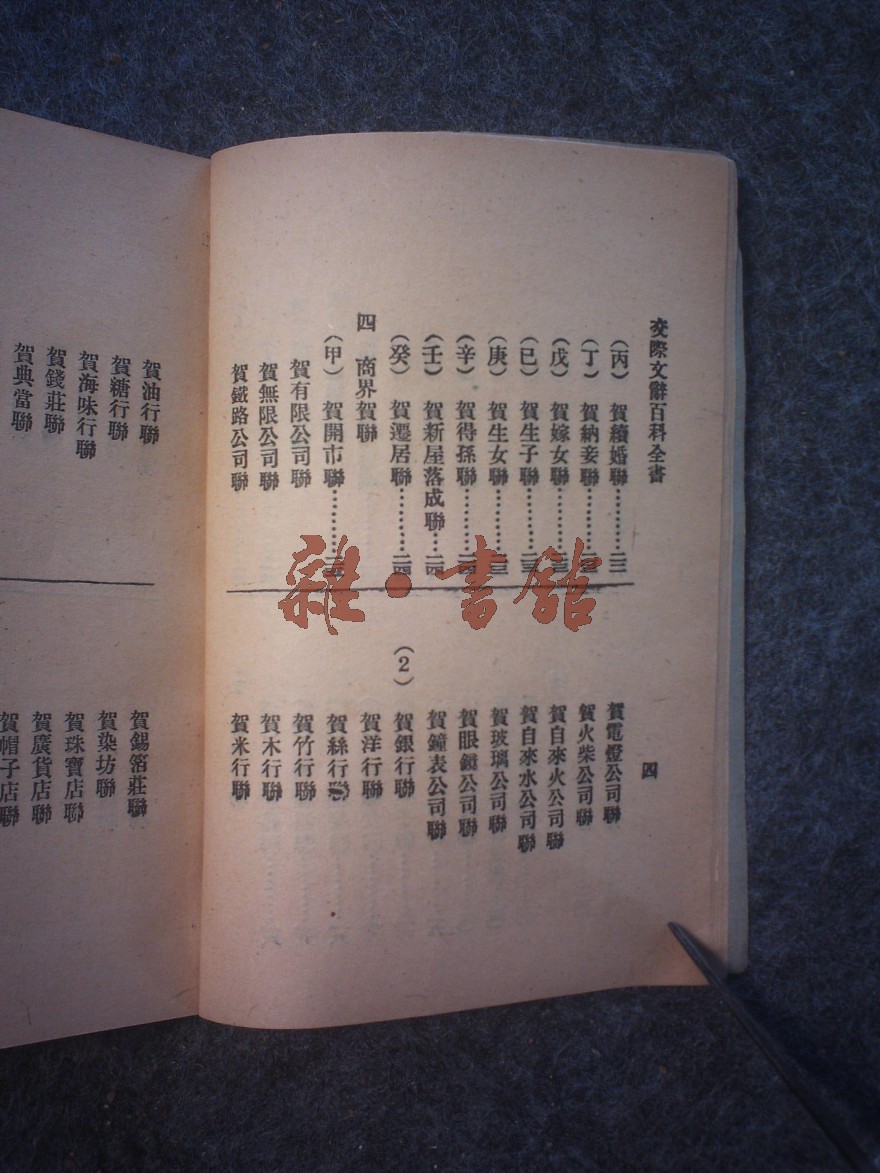 交際文辭百科全書
四
（丙）　賀續婚聯………二三
（丁）　賀納妾聯………二三
（戊）　賀嫁女聯………二三
（已）　賀生子聯………二三
（庚）　賀生女聯………二三
（辛）　賀得孫聯………二四
（壬）　賀新屋落成聯…二四
（癸）　賀遷居聯………二四
四　商界賀聯
（甲）　賀開市聯………
賀有限公司聯
賀無限公司聯
賀鐵路公司聯
賀電燈公司聯
賀火柴公司聯
賀自來火公司聯
賀自來水公司聯
賀玻璃公司聯
賀眼鏡公司聯
賀鐘表公司聯
賀銀行聯
賀洋行聯
賀絲行聯
賀竹行聯
賀木行聯
賀米行聯
（2）
賀油行聯
賀糖行聯
賀海味行聯
賀錢莊聯
賀典當聯
賀錫箔莊聯
賀染坊聯
賀珠寶店聯
賀廣貨店聯
賀帽子店聯
雜·書館